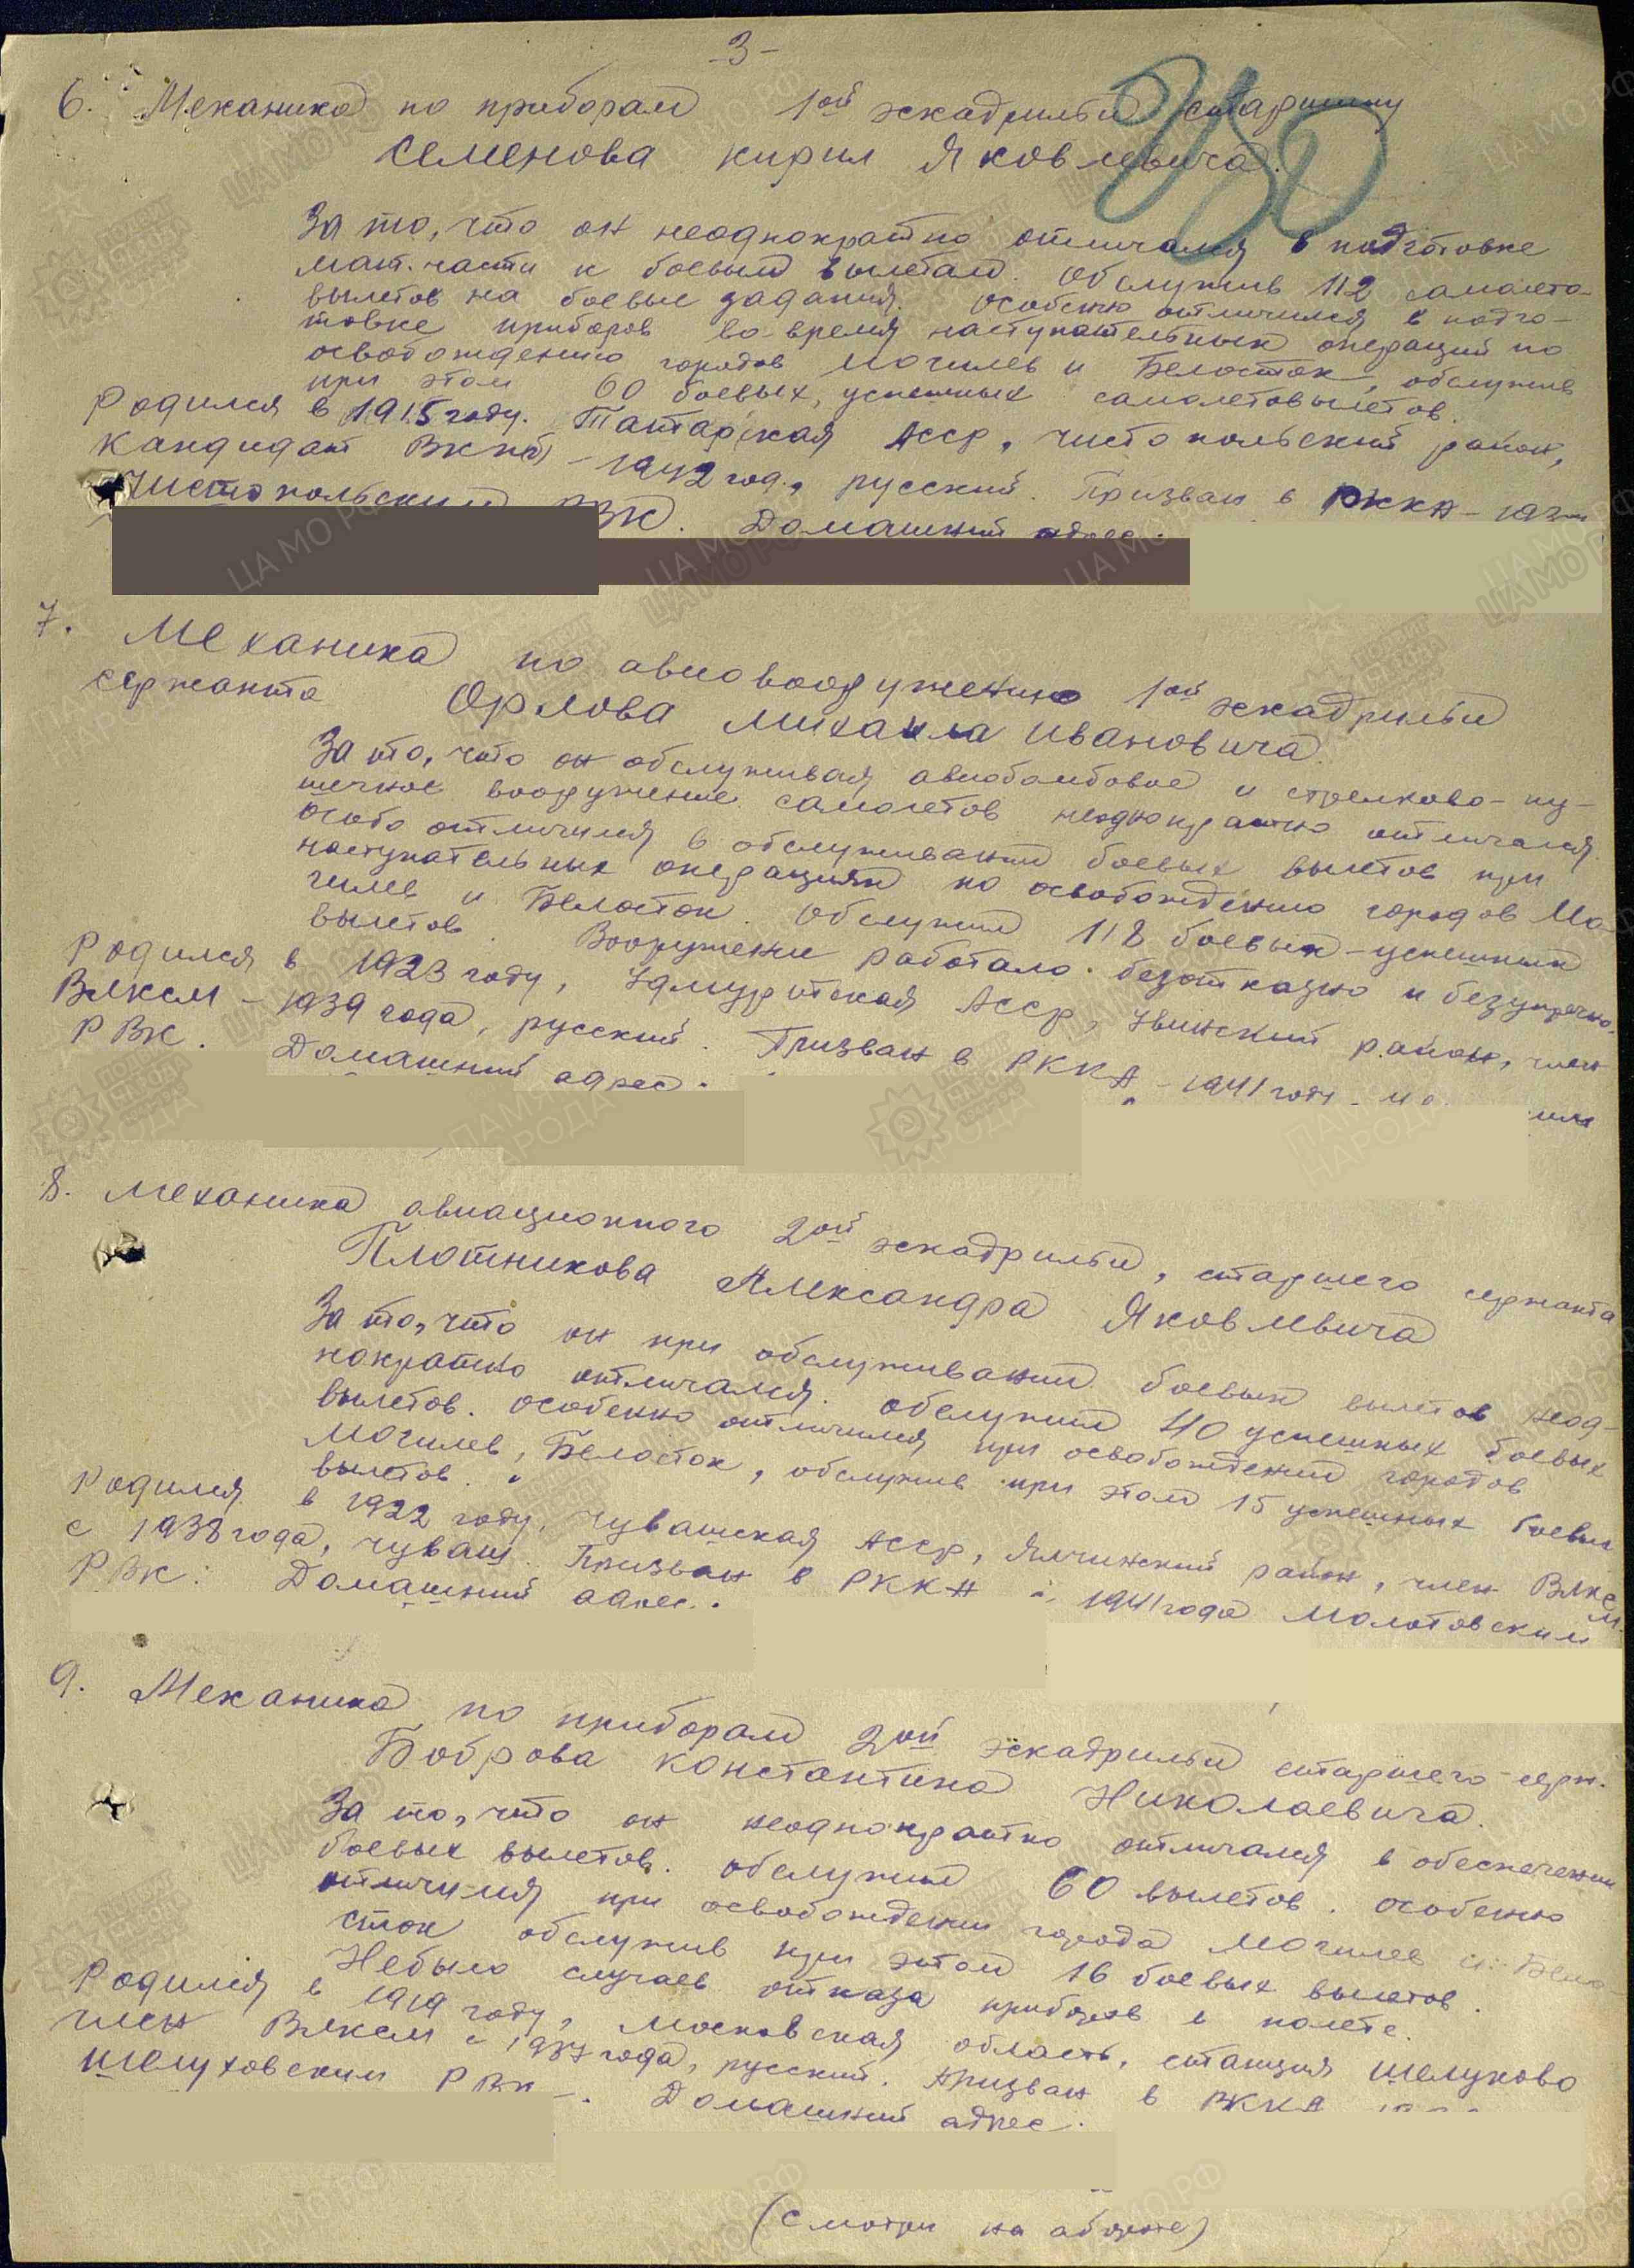 -3-
6. Механика по приборам 1ой эскадрильи старшину
Семенова Кирил Яковлевича.
За то, что он неоднократно отличался в подготовке
мат. части к боевым вылетам. Обслужив 112 самолето-
вылетов на боевые задания. Особенно отличился в подго-
товке приборов во время наступательных операций по
освобождению городов Могилев и Белосток, обслужив
при этом 60 боевых, успешных самолетовылетов.
Родился в 1915 году. Татарская АССР, Чистопольский район,
кандидат ВКП(б) – 1942 год., русский. Призван в РККА –
Чистопольским РВК. Домашний адрес.
7. Механика по авиовооружению 1ой эскадрильи
сержанта Орлова Михаила Ивановича.
За то, что он обслуживая авиобомбовое и стрелково-пу-
шечное вооружение самолетов неоднократно отличался.
Особо отличился в обслуживании боевых вылетов при
наступательных операциях по освобождению городов Мо-
гилев и Белосток. Обслужил 118 боевых-успешных
вылетов. Вооружение работало безотказно и безупречно.
Родился в 1923 году, Удмуртская АССР, Увинский район, член
ВЛКСМ – 1939 года, русский. Призван в РККА – 1941 году.
РВК. Домашний адрес.
8. Механика авиационного 2ой эскадрильи, старшего сержанта
Плотникова Александра Яковлевича
За то, что он при обслуживании боевых вылетов неод-
нократно отличался. Обслужил 40 успешных боевых
вылетов. Особенно отличился при освобождении городов
Могилев, Белосток, обслужив при этом 15 успешных боевых
вылетов.
Родился в 1922 году, Чувашская АССР, Ялчинский район, член ВЛКСМ
с 1938 года, чуваш. Призван в РККА 1941 года Молотовским
РВК. Домашний адрес.
9. Механика по приборам 2ой эскадрильи старшего серж.
Боброва Константина Николаевича.
За то, что он неоднократно отличался в обеспечении
боевых вылетов. Обслужил 60 вылетов. Особенно
отличился при освобождении города Могилев и Бело
сток обслужив при этом 16 боевых вылетов.
Небыло случаев отказа приборов в полете.
Родился в 1919 году, Московская область, станция Шелухово
член ВЛКСМ с 1937 года, русский. Призван в РККА
Шелуховским РВК –. Домашний адрес.
(Смотри на обороте)